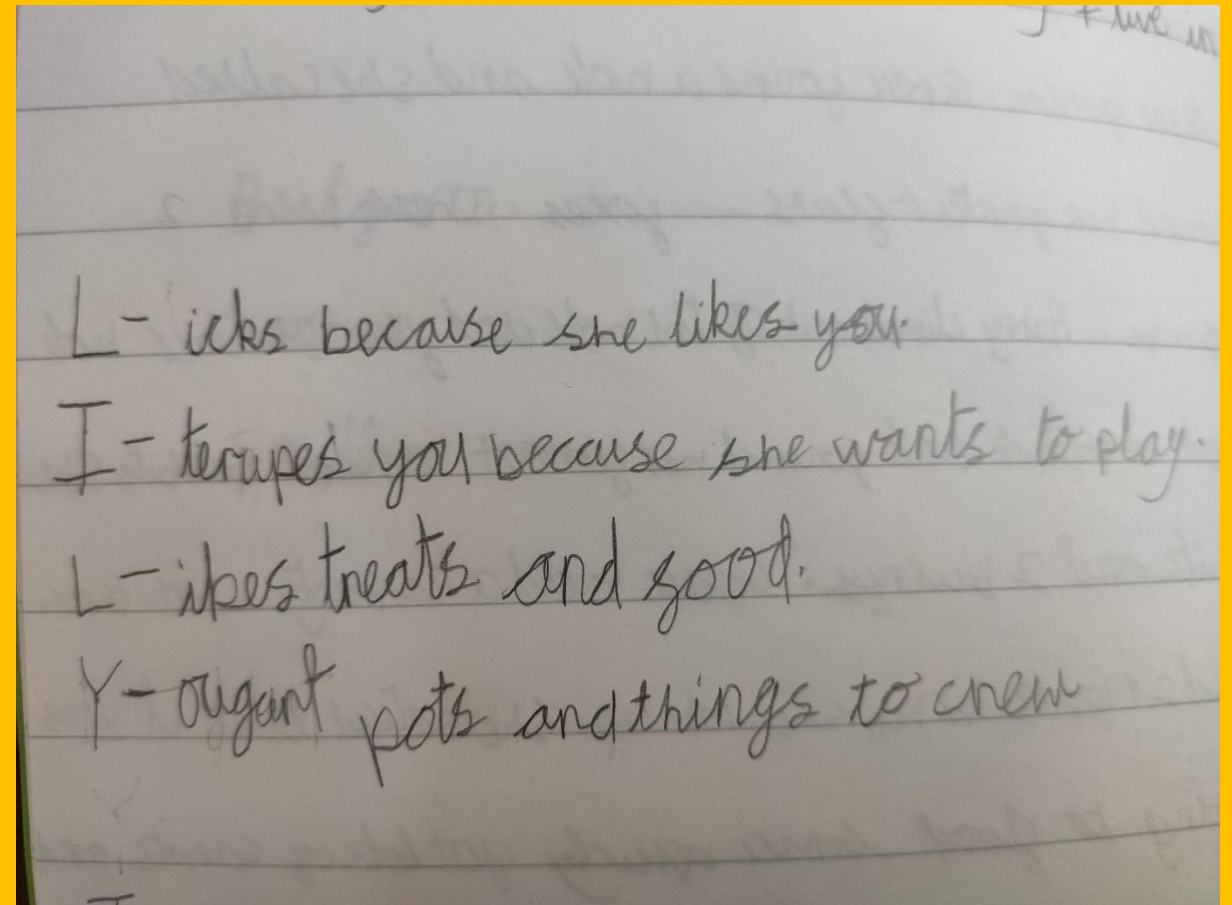 + live in
L- icks because she likes you.
I- terupes you because she wants to play.
L- ikes treats and food.
Y- ougant pots and things to chew